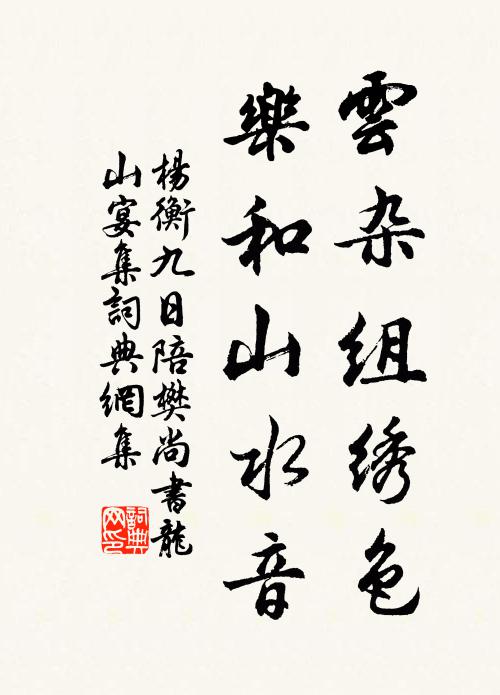 雲杂組绣色
樂和山水音
楊衡九日陪樊尚書龍
山宴集詞典網集
詞典
网印